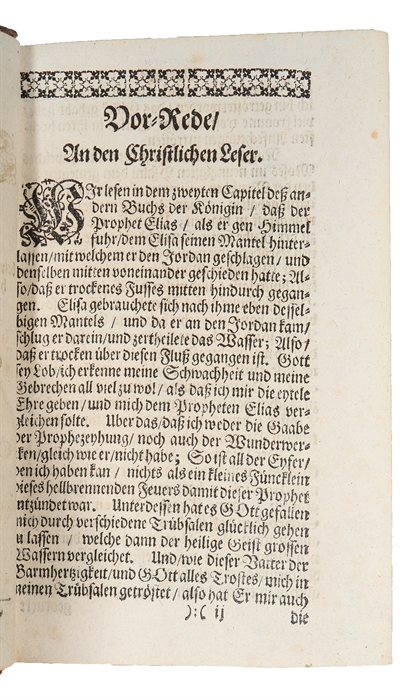 Vor-Rede/
An den Christlichen Leser.
WIr lesen in dem zweyten Capitel deß an-
dern Buchs der Königin / daß der
Prophet Elias / als er gen Himmel
fuhr/dem Elisa seinen Mantel hinter-
lassen/mit welchem er den Jordan geschlagen/ und
denselben mitten voneinander geschieden hatte; Al-
so/daß er trockenes Fusses mitten hindurch gegan-
gen. Elisa gebrauchete sich nach ihme eben dessel-
bigen Mantels / und da er an den Jordan kam/
schlug er darein/und zertheilete das Wasser; Also/
daß er trocken über diesen Fluß gegangen ist. Gott
sey Lob/ich erkenne meine Schwachheit und meine
Gebrechen all viel zu wol/ als daß ich mir die eytele
Ehre geben/und mich dem Propheten Elias ver-
gleichen solte. Uber das/daß ich weder die Gaabe
der Prophezeyhung/ noch auch der Wunderwer-
ken/gleich wie er/nicht habe; So ist all der Eyfer/
den ich haben kan / nichts als ein kleines Füncklein
dieses hellbrennenden Feuers damit dieser Prophet
entzündet war. Unterdessen hat es GOtt gefallen
mich durch verschiedene Trübsalen glücklich gehen
zu lassen / welche dann der heilige Geist grossen
Wassern vergleichet. Und/wie dieser Vatter der
Barmhertzigkeit/und GOtt alles Trostes/mich in
meinen Trübsalen getröstet/ also hat Er mir auch
):( ij
die